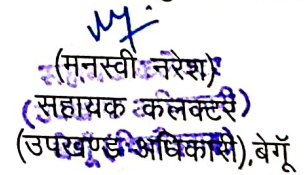 (मनस्वी नरेश)
(सहायक कलक्टर)
(उपखण्ड अधिकारी), बेगूँ